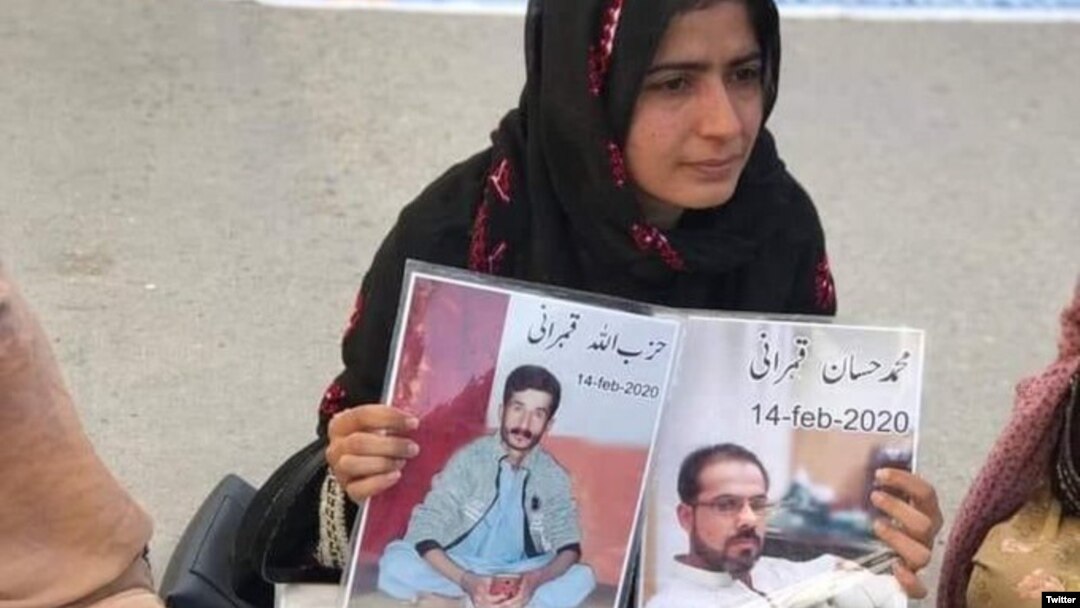 حزب اللہ قمبرانی
14-feb-2020
محمد حسان قمبرانی
14-feb-2020
Twitter